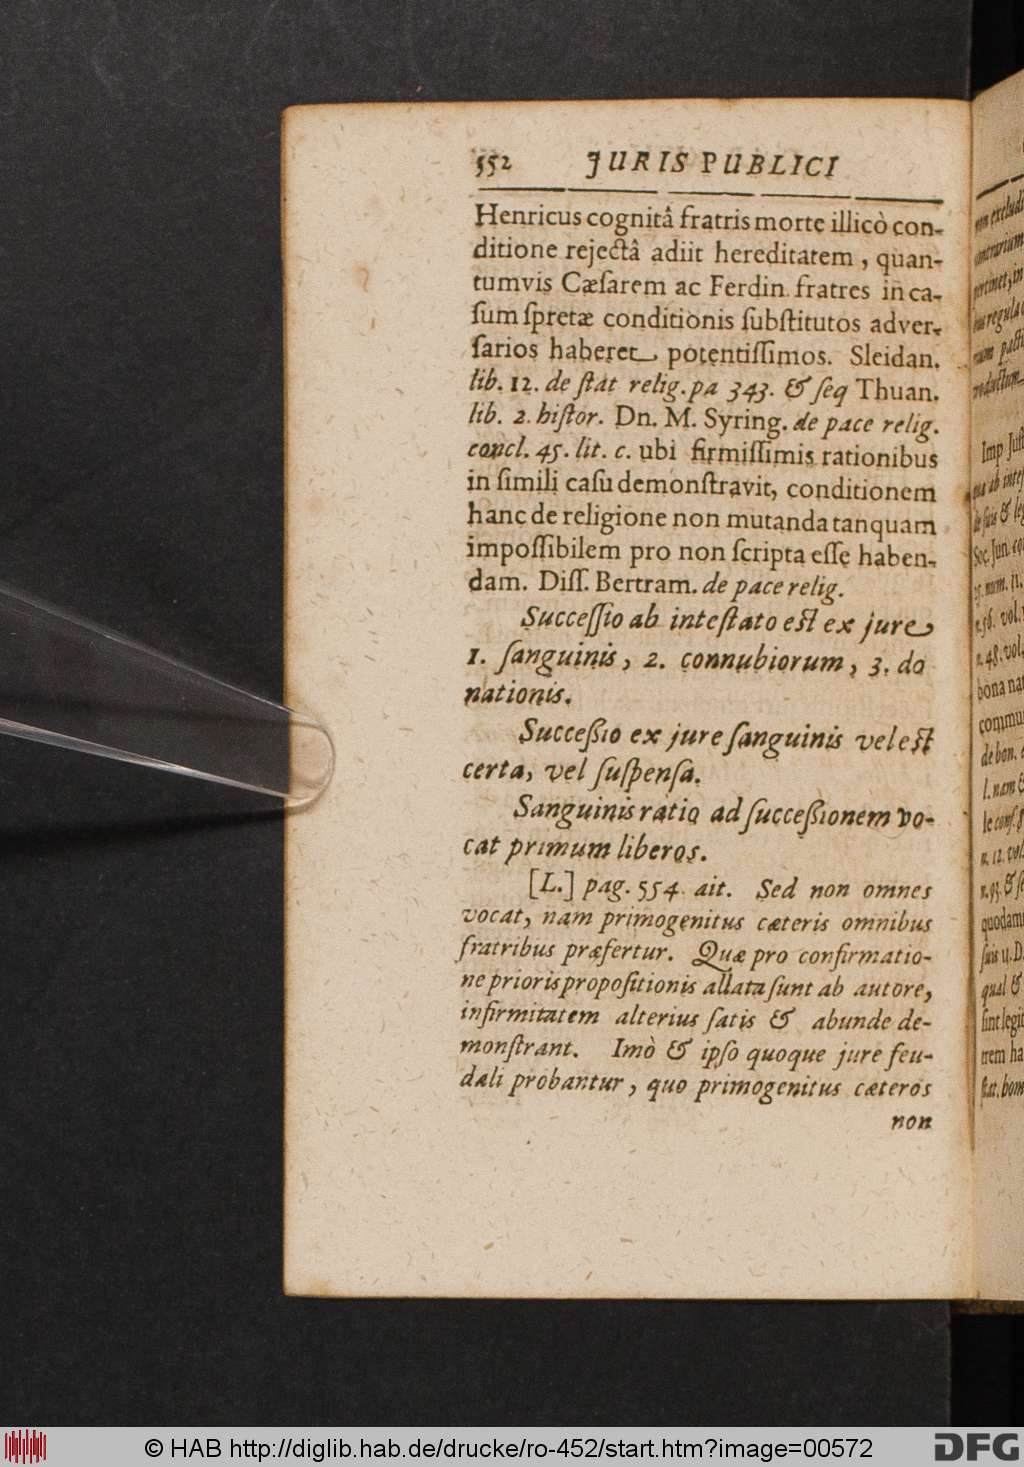 552 JURIS PUBLICI
Henricus cognitâ fratris morte illicò con-
ditione rejectâ adiit hereditatem, quan-
tumvis Cæſarem ac Ferdin. fratres in ca-
ſum ſpretæ conditionis ſubſtitutos adver-
ſarios haberet, potentiſſimos. Sleidan.
lib. 12. de ſtat relig. pa 343. & ſeq Thuan.
lib. 2. hiſtor. Dn. M. Syring. de pace relig.
concl. 45. lit. c. ubi firmiſſimis rationibus
in ſimili caſu demonſtravit, conditionem
hanc de religione non mutanda tanquam
impoſſibilem pro non ſcripta eſſe haben-
dam. Diſſ. Bertram. de pace relig.
Succeſſio ab inteſtato eſt ex jure
1. ſanguinis, 2. connubiorum, 3. do
nationis.
Succeßio ex jure ſanguinis vel eſt
certa, vel ſuſpenſa.
Sanguinis ratio ad ſucceßionem vo-
cat primum liberos.
[L.] pag. 554 ait. Sed non omnes
vocat, nam primogenitus cæteris omnibus
fratribus præfertur. Quæ pro confirmatio-
ne prioris propoſitionis allata ſunt ab autore,
infirmitatem alterius ſatis & abunde de-
monſtrant. Imò & ipſo quoque jure feu-
dali probantur, quo primogenitus cæteros
non
Imp Juſt
qua ab inteſ
de ſuis & leg
Soc. Jun. co
25. num. 11.
n. 56. vol.
n. 48. vol.
bona nat
commun
de bon.
l. nam &
le conſ. 8
n. 12. vol.
n. 93. & ſe
quodam
ſuis u. D.
qual &
ſint legit
trem ha
ſtat. bom
© HAB http://diglib.hab.de/drucke/ro-452/start.htm?image=00572
DFG